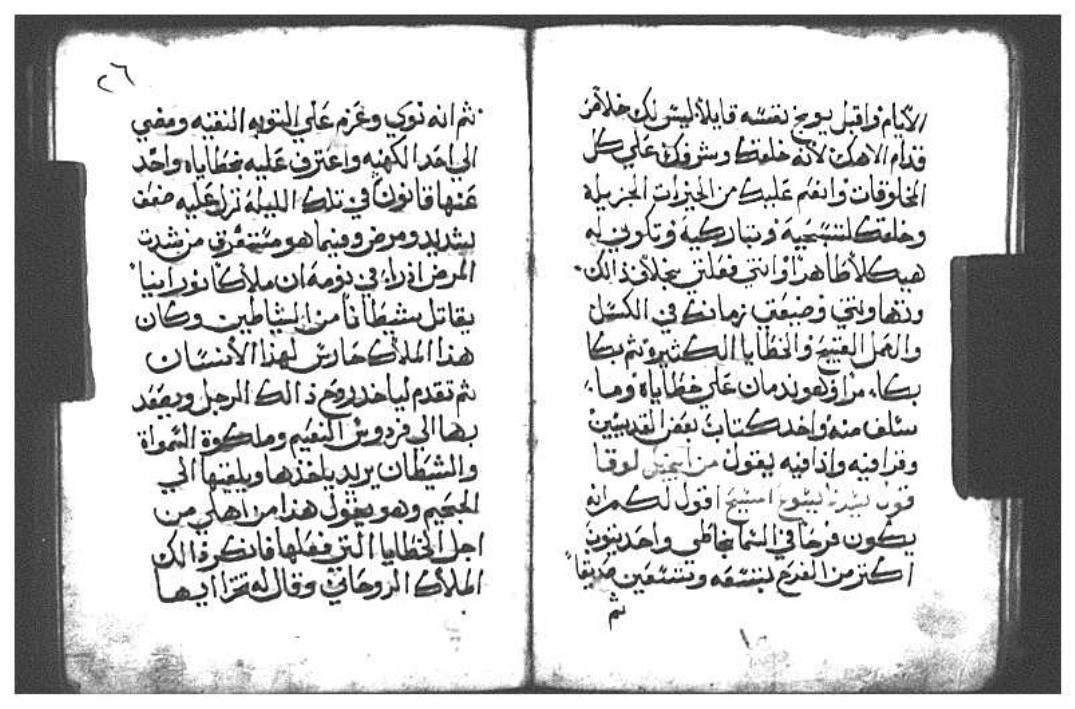 الأيام واقبل يوبخ نفسه قايلاً ليس لك خلاص
قدام الاهك لانه خلقك وشرفك علي كل
المخلوقات وانعم عليك من الخيرات الجزيله
وخلقك لتسبحيه وتباركيه وتكوني له
هيكلاً طاهراً وانتي فعلتي بخلاف ذالك
وتهاونتي وضيعتي زمانك في الكسل
والعمل القبيح والخطايا الكثيره ثم بكا
بكاء مراً وهو ندمان علي خطاياه وما
سلف منه واخد كتاب بعض القديسين
وقرا فيه واذا فيه يقول من انجيل لوقا
قول سيدنا يسوع المسيح اقول لكم انه
يكون فرحاً في السما بخاطي واحد يتوب
اكتر من الفرح بتسعه وتسعين صديقاً
ثم
٢٦
ثم انه نوي وعزم علي التوبه النقيه ومضي
الي احد الكهنه واعترف عليه بخطاياه واخد
عنها قانوناً في تلك الليله نزل عليه ضعف
شديد ومرض وفيما هو مستغرق من شدت
المرض اذ راء في نومه ان ملاكاً نورانياً
يقاتل شيطاناً من الشياطين وكان
هذا الملاك حارس لهذا الأنسان
ثم تقدم لياخد روح ذالك الرجل ويصعد
بها الي فردوس النعيم وملكوة السمواة
والشيطان يريد ياخذها ويلقيها الي
الجحيم وهو يقول هذا من اهلي من
اجل الخطايا التي فعلها فانكر ذالك
الملاك الروحاني وقال له ايها